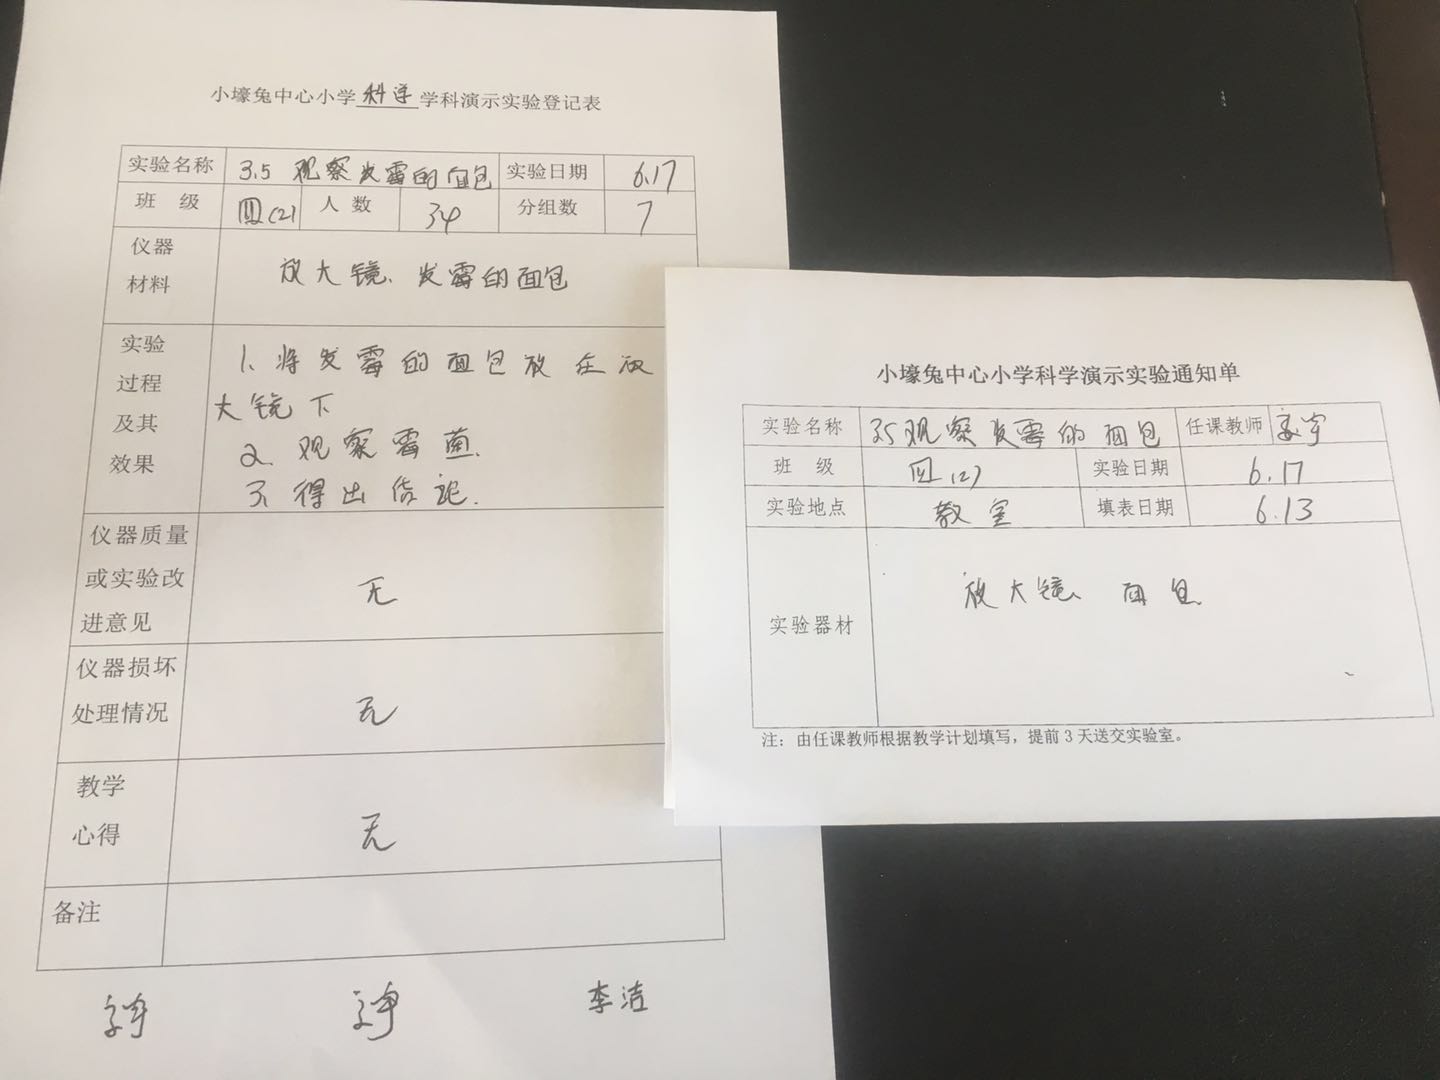 小壕兔中心小学科学学科演示实验登记表
实验名称 3.5 观察发霉的面包 实验日期 6.17
班 级 四(2) 人 数 34 分组数 7
仪器
材料
放大镜、发霉的面包
实验
过程
及其
效果
1、将发霉的面包放在放
大镜下
2、观察霉菌.
3、得出结论.
仪器质量
或实验改
进意见
无
仪器损坏
处理情况
无
教学
心得
无
备注
李洁
小壕兔中心小学科学演示实验通知单
实验名称 3.5观察发霉的面包 任课教师
班 级 四(2) 实验日期 6.17
实验地点 教室 填表日期 6.13
实验器材
放大镜、面包
注：由任课教师根据教学计划填写，提前3天送交实验室。